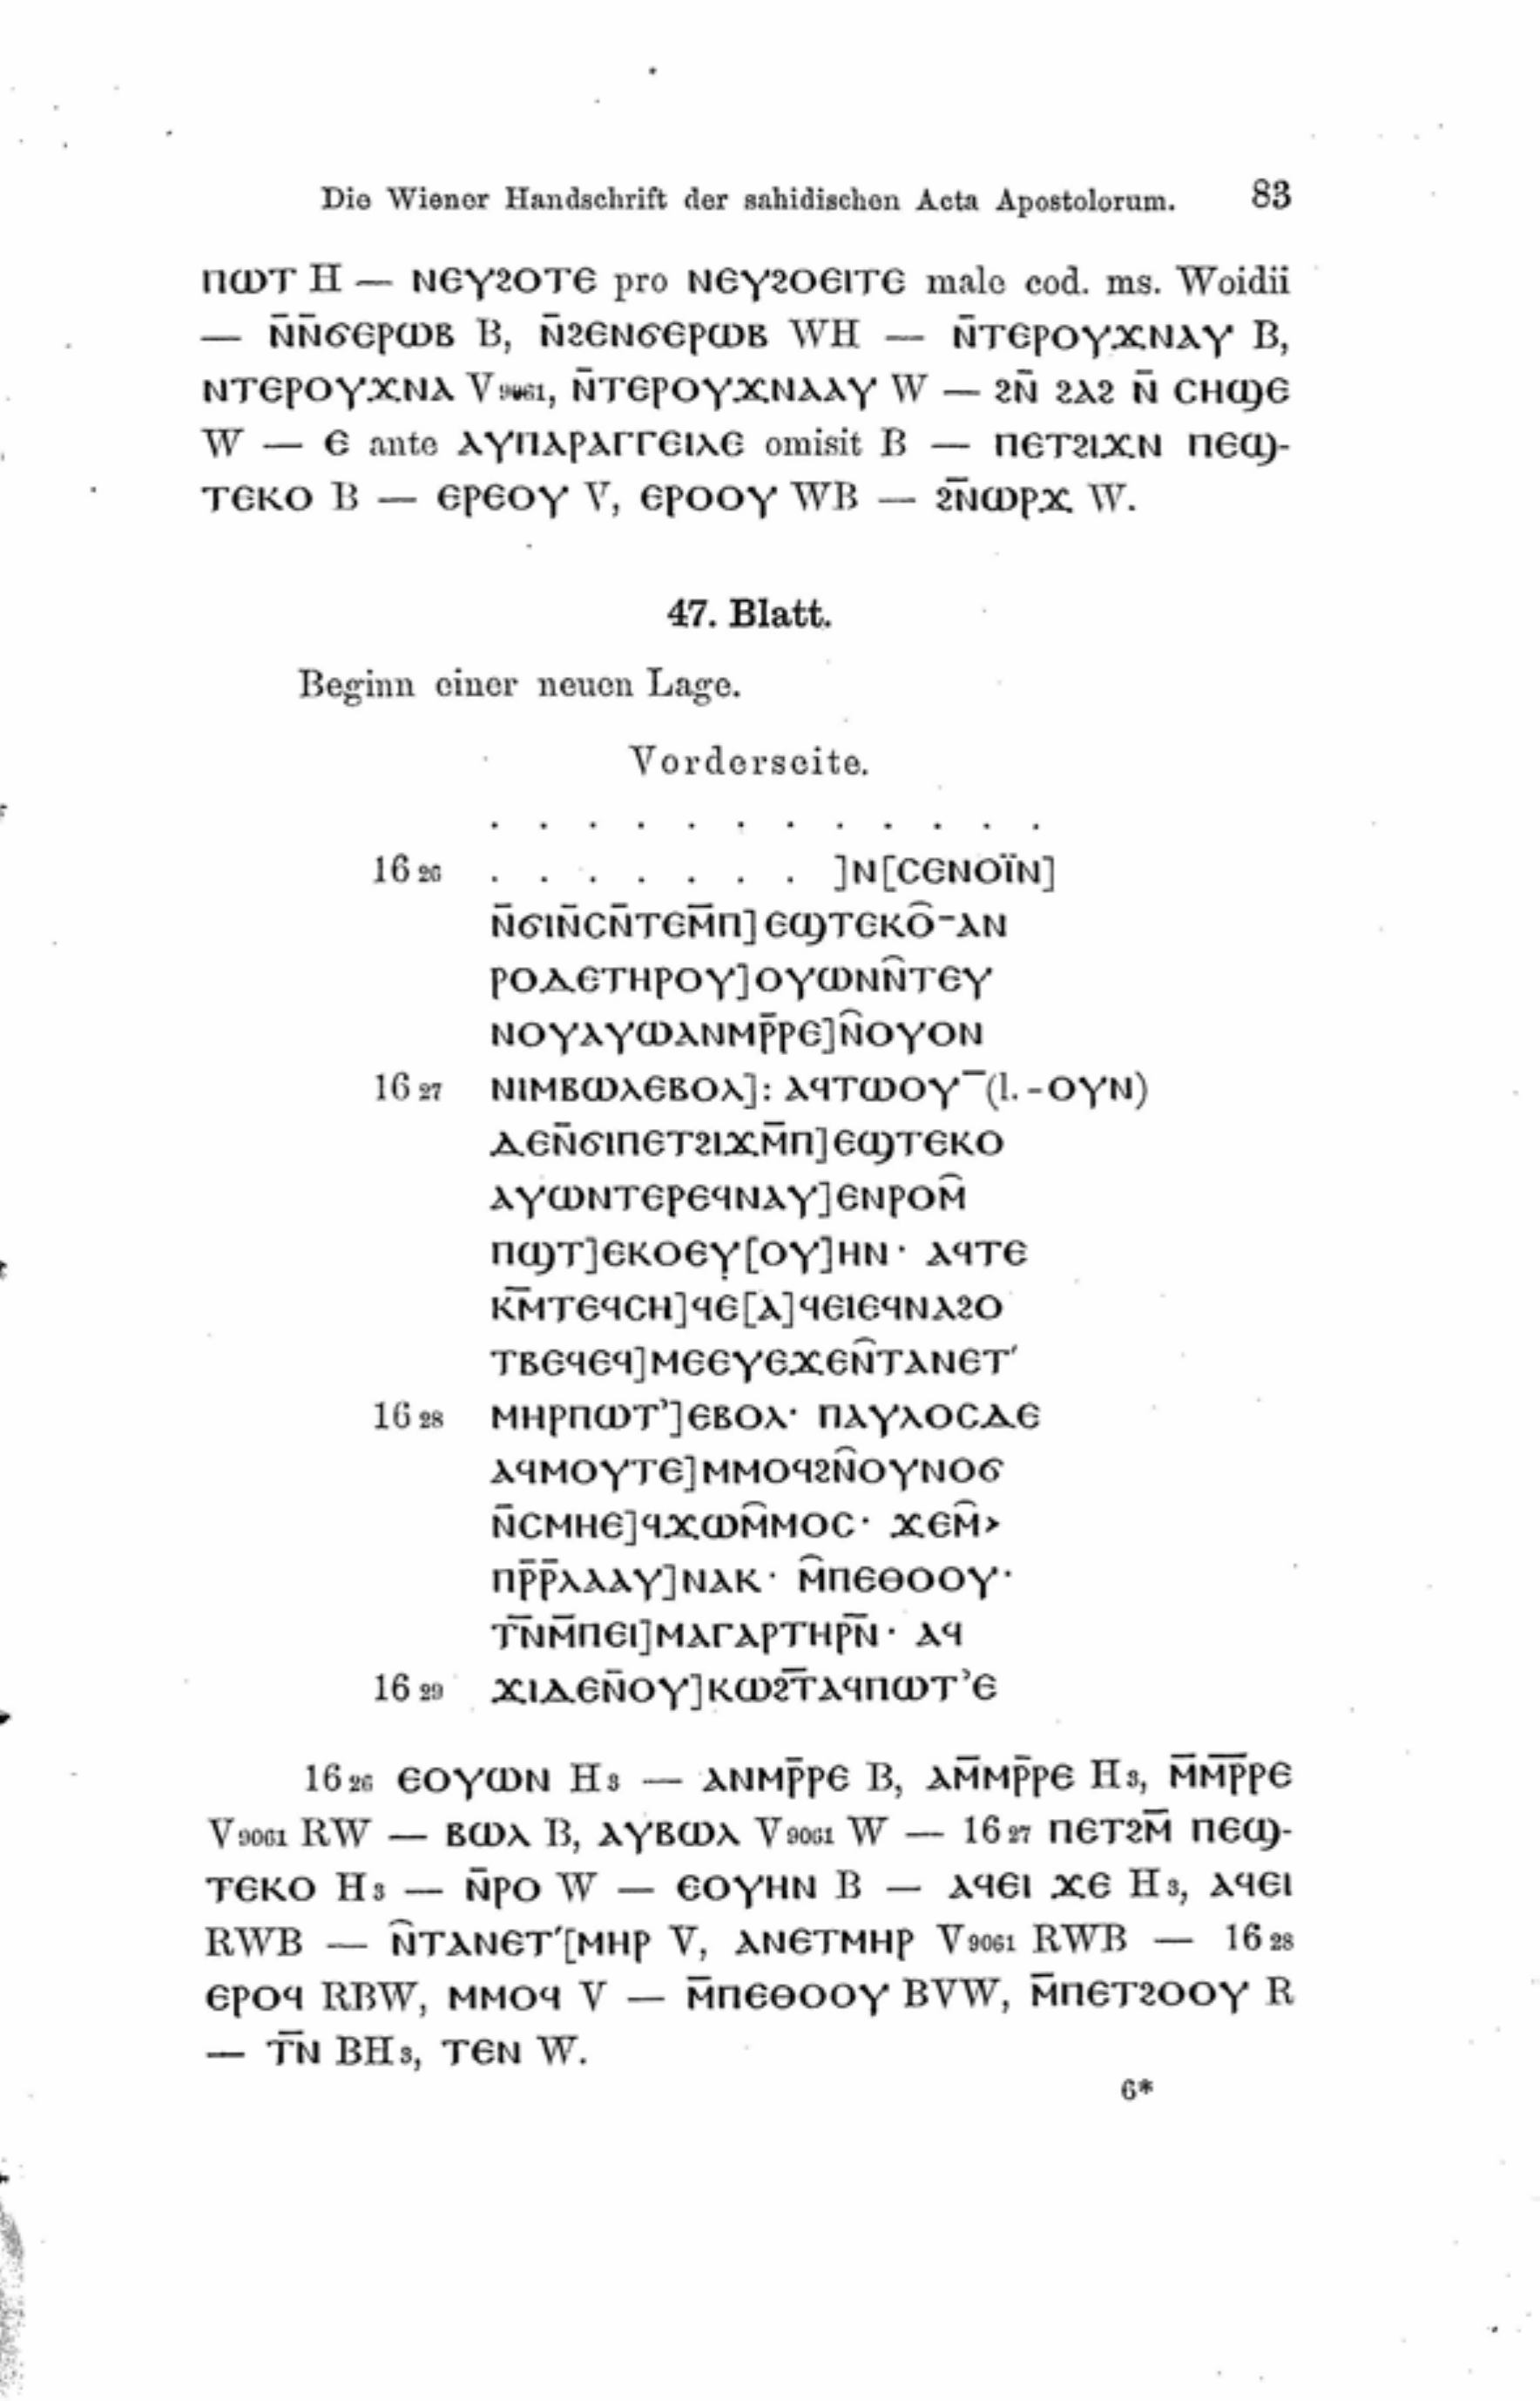 Die Wiener Handschrift der sahidischen Acta Apostolorum. 83
ⲡⲱⲧ H — ⲛⲉⲩϩⲟⲧⲉ pro ⲛⲉⲩϩⲟⲉⲓⲧⲉ male cod. ms. Woidii
— ⲛ̄ⲛ̄ϭⲉⲣⲱⲃ B, ⲛ̄ϩⲉⲛϭⲉⲣⲱⲃ WH — ⲛ̄ⲧⲉⲣⲟⲩϫⲛⲁⲩ B,
ⲛⲧⲉⲣⲟⲩϫⲛⲁ V 9061, ⲛ̄ⲧⲉⲣⲟⲩϫⲛⲁⲁⲩ W — ϩⲛ̄ ϩⲁϩ ⲛ̄ ⲥⲏϣⲉ
W — ⲉ ante ⲁⲩⲡⲁⲣⲁⲅⲅⲉⲓⲗⲉ omisit B — ⲡⲉⲧϩⲓϫⲛ ⲡⲉϣ-
ⲧⲉⲕⲟ B — ⲉⲣⲉⲟⲩ V, ⲉⲣⲟⲟⲩ WB — ϩⲛ̄ⲱⲣϫ W.
47. Blatt.
Beginn einer neuen Lage.
Vorderseite.
. . . . . . . . . . . .
16 26 . . . . . . . ]ⲛ[ⲥⲉⲛⲟⲓ̈ⲛ]
ⲛ̄ϭⲓⲛ̄ⲥⲛ̄ⲧⲉⲙ̄ⲡ]ⲉϣⲧⲉⲕⲟ̑-ⲁⲛ
ⲣⲟⲇⲉⲧⲏⲣⲟⲩ]ⲟⲩⲱⲛⲛ̑ⲧⲉⲩ
ⲛⲟⲩⲁⲩⲱⲁⲛⲙⲣ̄ⲣⲉ]ⲛ̑ⲟⲩⲟⲛ
16 27 ⲛⲓⲙⲃⲱⲗⲉⲃⲟⲗ]: ⲁϥⲧⲱⲟⲩ‾(l. -ⲟⲩⲛ)
ⲇⲉⲛ̄ϭⲓⲡⲉⲧϩⲓϫⲙ̄ⲡ]ⲉϣⲧⲉⲕⲟ
ⲁⲩⲱⲛⲧⲉⲣⲉϥⲛⲁⲩ]ⲉⲛⲣⲟⲙ̑
ⲡϣⲧ]ⲉⲕⲟⲉⲩ̣[ⲟⲩ]ⲏⲛ· ⲁϥⲧⲉ
ⲕⲙ̄ⲧⲉϥⲥⲏ]ϥⲉ[ⲁ]ϥⲉⲓⲉϥⲛⲁϩⲟ
ⲧⲃⲉϥⲉϥ]ⲙⲉⲉⲩⲉϫⲉⲛ̑ⲧⲁⲛⲉⲧ′
16 28 ⲙⲏⲣⲡⲱⲧ’]ⲉⲃⲟⲗ· ⲡⲁⲩⲗⲟⲥⲇⲉ
ⲁϥⲙⲟⲩⲧⲉ]ⲙⲙⲟϥϩⲛ̑ⲟⲩⲛⲟϭ
ⲛ̄ⲥⲙⲏⲉ]ϥϫⲱⲙ̑ⲙⲟⲥ· ϫⲉⲙ̑>
ⲡⲣ̄ⲣ̄ⲗⲁⲁⲩ]ⲛⲁⲕ· ⲙ̑ⲡⲉⲑⲟⲟⲩ·
ⲧⲛ̄ⲙ̄ⲡⲉⲓ]ⲙⲁⲅⲁⲣⲧⲏⲣⲛ̄· ⲁϥ
16 29 ϫⲓⲇⲉⲛ̄ⲟⲩ]ⲕⲱϩⲧ̄ⲁϥⲡⲱⲧ’ⲉ
16 26 ⲉⲟⲩⲱⲛ H 3 — ⲁⲛⲙⲣ̄ⲣⲉ B, ⲁⲙ̄ⲙⲣ̄ⲣⲉ H 3, ⲙ̄ⲙ̄ⲣ̄ⲣⲉ
V 9061 RW — ⲃⲱⲗ B, ⲁⲩⲃⲱⲗ V 9061 W — 16 27 ⲡⲉⲧϩⲙ̄ ⲡⲉϣ-
ⲧⲉⲕⲟ H 3 — ⲛ̄ⲣⲟ W — ⲉⲟⲩⲏⲛ B — ⲁϥⲉⲓ ϫⲉ H 3, ⲁϥⲉⲓ
RWB — ⲛ̑ⲧⲁⲛⲉⲧ′[ⲙⲏⲣ V, ⲁⲛⲉⲧⲙⲏⲣ V 9061 RWB — 16 28
ⲉⲣⲟϥ RBW, ⲙⲙⲟϥ V — ⲙ̄ⲡⲉⲑⲟⲟⲩ BVW, ⲙ̄ⲡⲉⲧϩⲟⲟⲩ R
— ⲧⲛ̄ BH 3, ⲧⲉⲛ W.
6*